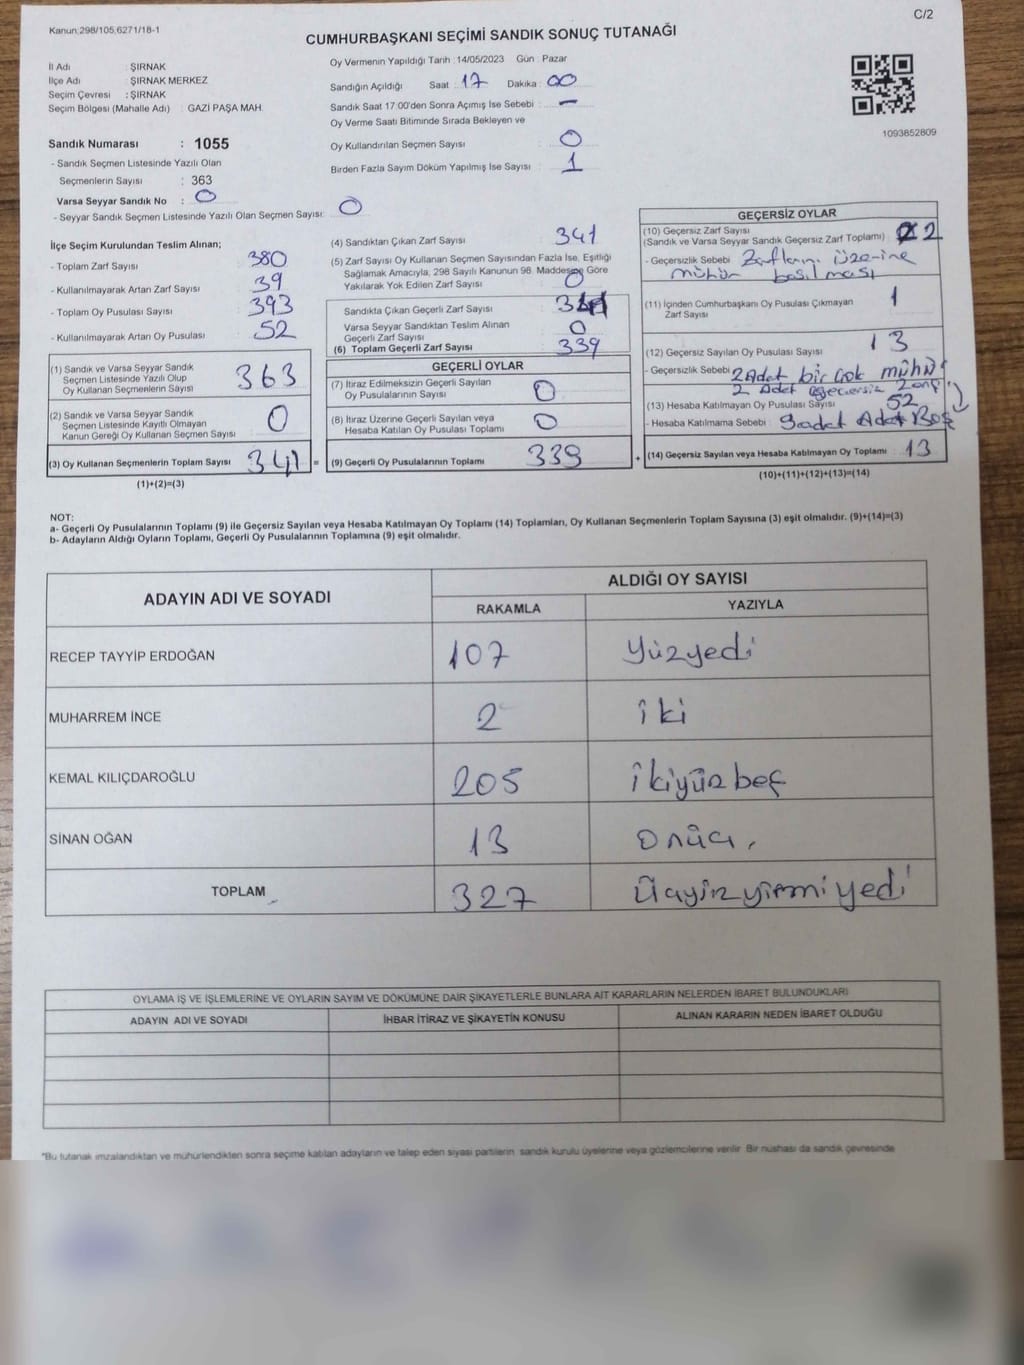 C/2
Kanun:298/105,6271/18-1
CUMHURBAŞKANI SEÇİMİ SANDIK SONUÇ TUTANAĞI
İl Adı : ŞIRNAK
İlçe Adı : ŞIRNAK MERKEZ
Seçim Çevresi : ŞIRNAK
Seçim Bölgesi (Mahalle Adı) : GAZİ PAŞA MAH.
Sandık Numarası : 1055
- Sandık Seçmen Listesinde Yazılı Olan
Seçmenlerin Sayısı : 363
Varsa Seyyar Sandık No : 0
- Seyyar Sandık Seçmen Listesinde Yazılı Olan Seçmen Sayısı: 0
Oy Vermenin Yapıldığı Tarih : 14/05/2023 Gün : Pazar
Sandığın Açıldığı Saat : 17 Dakika : 00
Sandık Saat 17:00'den Sonra Açımış İse Sebebi : –
Oy Verme Saati Bitiminde Sırada Bekleyen ve
Oy Kullandırılan Seçmen Sayısı : 0
Birden Fazla Sayım Döküm Yapılmış İse Sayısı : 1
1093852809
İlçe Seçim Kurulundan Teslim Alınan;
- Toplam Zarf Sayısı : 380
- Kullanılmayarak Artan Zarf Sayısı : 39
- Toplam Oy Pusulası Sayısı : 393
- Kullanılmayarak Artan Oy Pusulası : 52
(1) Sandık ve Varsa Seyyar Sandık
Seçmen Listesinde Yazılı Olup
Oy Kullanan Seçmenlerin Sayısı 363
(2) Sandık ve Varsa Seyyar Sandık
Seçmen Listesinde Kayıtlı Olmayan
Kanun Gereği Oy Kullanan Seçmen Sayısı : 0
(3) Oy Kullanan Seçmenlerin Toplam Sayısı 341 =
(1)+(2)=(3)
(4) Sandıktan Çıkan Zarf Sayısı : 341
(5) Zarf Sayısı Oy Kullanan Seçmen Sayısından Fazla İse, Eşitliği
Sağlamak Amacıyla, 298 Sayılı Kanunun 98. Maddesine Göre
Yakılarak Yok Edilen Zarf Sayısı : 0
Sandıkta Çıkan Geçerli Zarf Sayısı
Varsa Seyyar Sandıktan Teslim Alınan
Geçerli Zarf Sayısı : 0
(6) Toplam Geçerli Zarf Sayısı 339
GEÇERLİ OYLAR
(7) İtiraz Edilmeksizin Geçerli Sayılan
Oy Pusulalarının Sayısı : 0
(8) İtiraz Üzerine Geçerli Sayılan veya
Hesaba Katılan Oy Pusulası Toplamı : 0
(9) Geçerli Oy Pusulalarının Toplamı 339 +
GEÇERSİZ OYLAR
(10) Geçersiz Zarf Sayısı
(Sandık ve Varsa Seyyar Sandık Geçersiz Zarf Toplamı) : 2
- Geçersizlik Sebebi : Zarfların üzerine
mühür basılması
(11) İçinden Cumhurbaşkanı Oy Pusulası Çıkmayan
Zarf Sayısı : 1
(12) Geçersiz Sayılan Oy Pusulası Sayısı : 13
- Geçersizlik Sebebi : 2 Adet bir çok mühür
2 Adet geçersiz
(13) Hesaba Katılmayan Oy Pusulası Sayısı : 52
- Hesaba Katılmama Sebebi : 9 adet Adet Boş
(14) Geçersiz Sayılan veya Hesaba Katılmayan Oy Toplamı : 13
(10)+(11)+(12)+(13)=(14)
NOT:
a- Geçerli Oy Pusulalarının Toplamı (9) ile Geçersiz Sayılan veya Hesaba Katılmayan Oy Toplamı (14) Toplamları, Oy Kullanan Seçmenlerin Toplam Sayısına (3) eşit olmalıdır. (9)+(14)=(3)
b- Adayların Aldığı Oyların Toplamı, Geçerli Oy Pusulalarının Toplamına (9) eşit olmalıdır.
ADAYIN ADI VE SOYADI ALDIĞI OY SAYISI
RAKAMLA YAZIYLA
RECEP TAYYİP ERDOĞAN 107 Yüzyedi
MUHARREM İNCE 2 iki
KEMAL KILIÇDAROĞLU 205 ikiyüz beş
SİNAN OĞAN 13 onüç
TOPLAM 327 Üçyüz yirmi yedi
OYLAMA İŞ VE İŞLEMLERİNE VE OYLARIN SAYIM VE DÖKÜMÜNE DAİR ŞİKAYETLERLE BUNLARA AİT KARARLARIN NELERDEN İBARET BULUNDUKLARI
ADAYIN ADI VE SOYADI İHBAR İTİRAZ VE ŞİKAYETİN KONUSU ALINAN KARARIN NEDEN İBARET OLDUĞU
*Bu tutanak imzalandıktan ve mühürlendikten sonra seçime katılan adayların ve talep eden siyasi partilerin sandık kurulu üyelerine veya gözlemcilerine verilir. Bir nüshası da sandık çevresinde